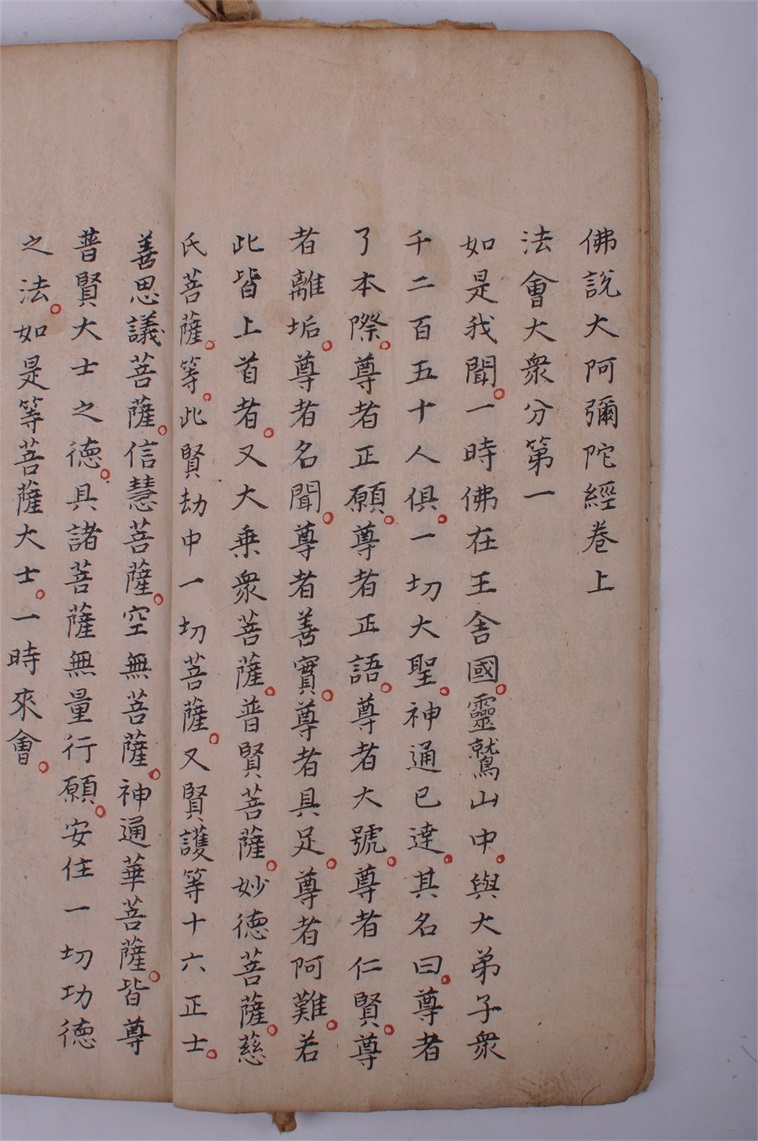 佛說大阿彌陀經卷上
法會大衆分第一
如是我聞。一時佛在王舍國。靈鷲山中。與大弟子衆
千二百五十人俱。一切大聖。神通已達。其名曰。尊者
了本際。尊者正願。尊者正語。尊者大號。尊者仁賢。尊
者離垢。尊者名聞。尊者善實。尊者具足。尊者阿難。若
此皆上首者。又大乘衆菩薩。普賢菩薩。妙德菩薩。慈
氏菩薩。等。此賢劫中一切菩薩。又賢護等十六正士。
善思議菩薩。信慧菩薩。空無菩薩。神通華菩薩。皆尊
普賢大士之德。具諸菩薩無量行願。安住一切功德
之法。如是等菩薩大士。一時來會。